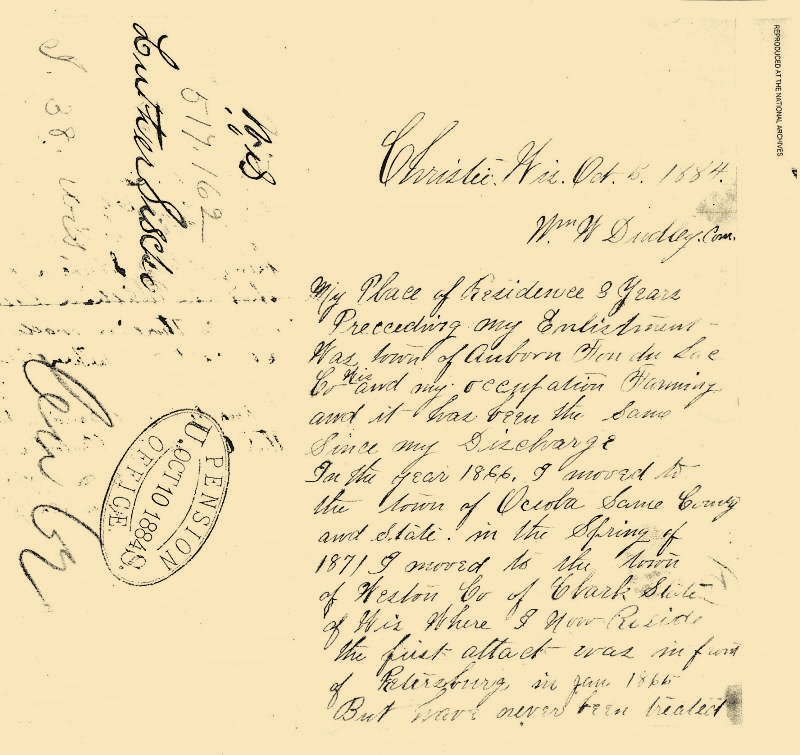 REPRODUCED AT THE NATIONAL ARCHIVES
Wis
517.162
Luther
J. 38. Wis.
U.S. PENSION
OCT 10 1884
OFFICE
Christie. Wis. Oct. 1884.
Wm W Dudley. Com.
My Place of Residence 3 Years
Preceeding my Enlistment
Was town of Auborn Fon du Lac
Co Wis and my occupation Farming
and it has been the Same
Since my Discharge
In the year 1866. I moved to
the town of Oceola Same County
and State. in the Spring of
1871 I moved to the town
of Weston Co of Clark State
of Wis Where I Now Reside
the first attact was in front
of Petersburg in Jan
But have never been treated